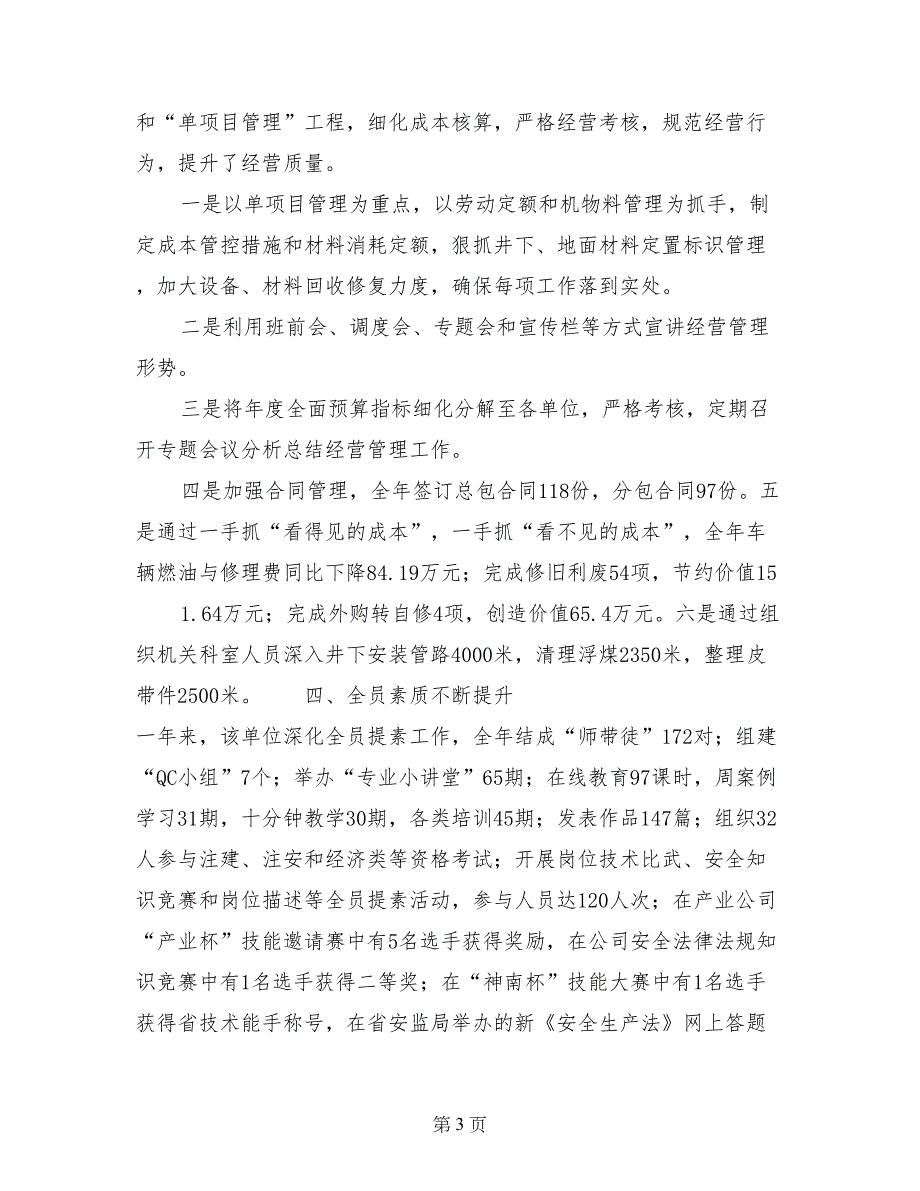 和“单项目管理”工程，细化成本核算，严格经营考核，规范经营行
为，提升了经营质量。
一是以单项目管理为重点，以劳动定额和机物料管理为抓手，制
定成本管控措施和材料消耗定额，狠抓井下、地面材料定置标识管理
，加大设备、材料回收修复力度，确保每项工作落到实处。
二是利用班前会、调度会、专题会和宣传栏等方式宣讲经营管理
形势。
三是将年度全面预算指标细化分解至各单位，严格考核，定期召
开专题会议分析总结经营管理工作。
四是加强合同管理，全年签订总包合同118份，分包合同97份。五
是通过一手抓“看得见的成本”，一手抓“看不见的成本”，全年车
辆燃油与修理费同比下降84.19万元；完成修旧利废54项，节约价值15
1.64万元；完成外购转自修4项，创造价值65.4万元。六是通过组
织机关科室人员深入井下安装管路4000米，清理浮煤2350米，整理皮
带件2500米。　　四、全员素质不断提升
一年来，该单位深化全员提素工作，全年结成“师带徒”172对；组建
“QC小组”7个；举办“专业小讲堂”65期；在线教育97课时，周案例
学习31期，十分钟教学30期，各类培训45期；发表作品147篇；组织32
人参与注建、注安和经济类等资格考试；开展岗位技术比武、安全知
识竞赛和岗位描述等全员提素活动，参与人员达120人次；在产业公司
“产业杯”技能邀请赛中有5名选手获得奖励，在公司安全法律法规知
识竞赛中有1名选手获得二等奖；在“神南杯”技能大赛中有1名选手
获得省技术能手称号，在省安监局举办的新《安全生产法》网上答题
第 3 页